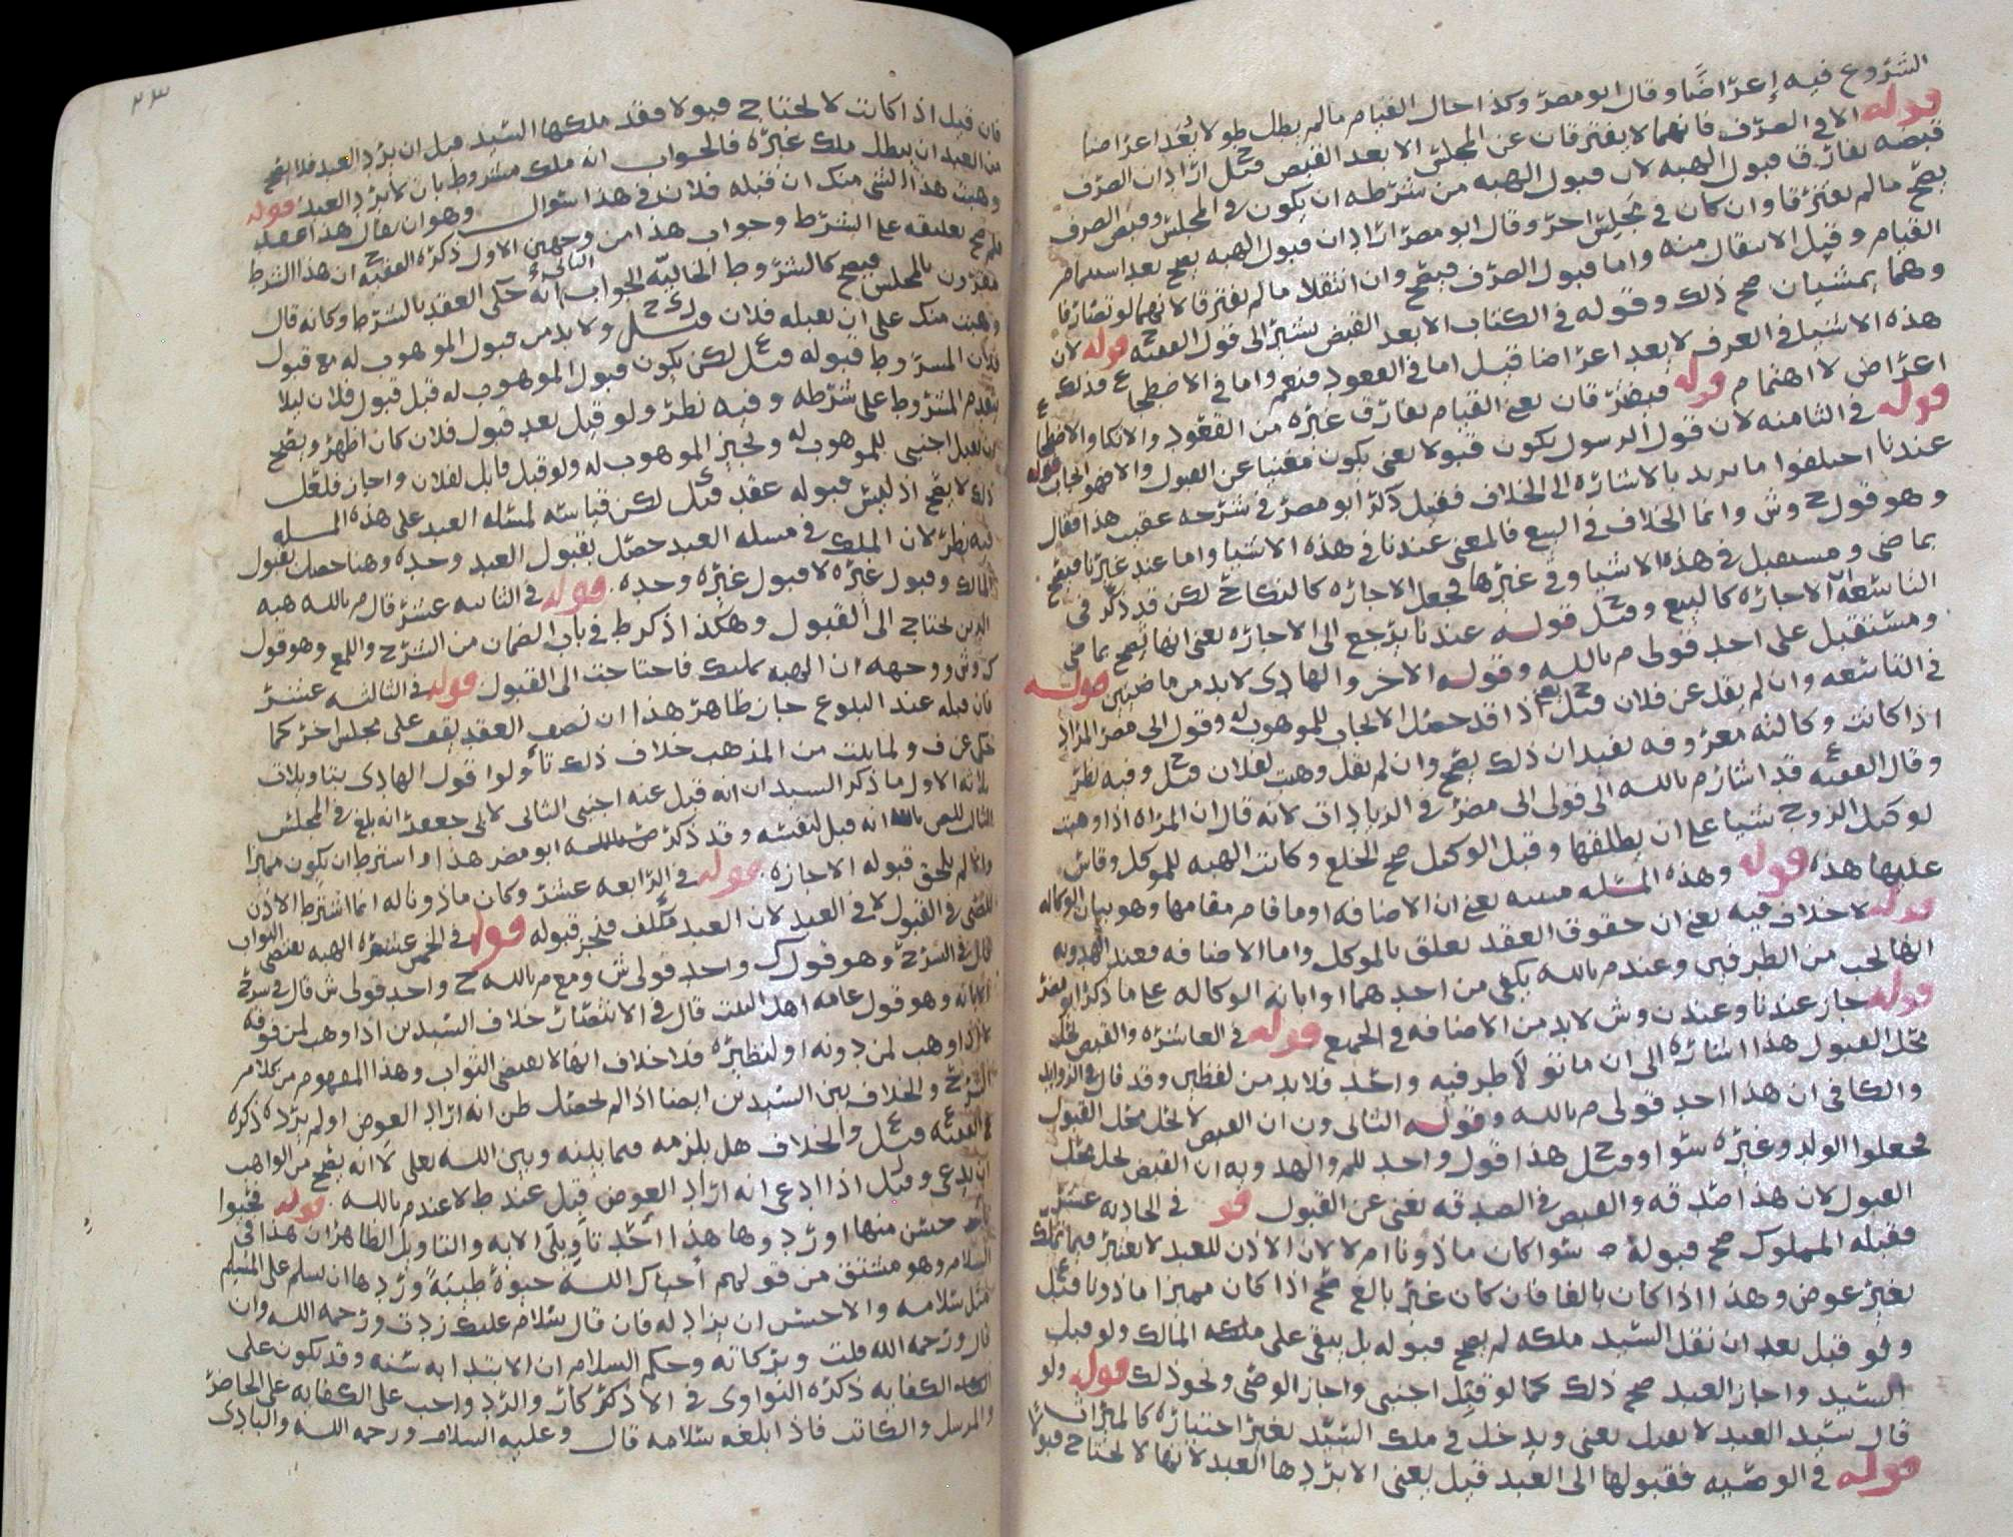 الشروع فيه إعراضًا وقال ابو مضر وكذا حال القيام مالم يطل طولا بُعد اعراضا
قوله الا في الصرف فانهما لا يفترقان عن المجلس الا بعد القبض قيل اراد ان الصرف
قبضه يفارق قبول الهبه لان قبول الهبه من شرطه ان يكون في المجلس وقبض الصرف
يصح مالم يفترقا وان كان في مجلس اخر وقال ابو مضر اراد ان قبول الهبه يصح بعد استتمام
القيام وقبل الانتقال منه واما قبول الصرف فيصح وان انتقلا مالم يفترقا لانهما لو تصارفا
وهما يمشيان صح ذلك وقوله في الكتاب الا بعد القبض يشير الى قول الفقيه ح قوله لان
هذه الاشيا في العرف لا يعد اعراضا قيل اما في القعود فنعم واما في الاضطجاع فذلك
اعراض لا اهتمام قوله فيضر فان يعني القيام يفارق غيره من القعود والاتكا والاضطجاع
قوله في الثامنه لان قول الرسول يكون قبولا يعني يكون مغنيا عن القبول والا فهو ايجاب قوله
عندنا اختلفوا ما يريد بالاشاره الى الخلاف فقيل ذكر ابو مضر في شرحه عقيب هذا فقال
وهو قول ح وش وانما الخلاف في البيع فالمعنى عندنا في هذه الاشيا واما عند غيرنا فيصح
بماضي ومستقبل في هذه الاشيا وفي غيرها فجعل الاجاره كالنكاح لكن قد ذكر في
التاسعه ان الاجاره كالبيع وقيل ح قوله عندنا يرجع الى الاجاره يعني انها تصح بماض
ومستقبل على احد قولي م بالله وقوله الاخر والهادي لابد من ماضيين قوله
في التاسعه وان لم يقل عن فلان قيل ح يعني اذا قد حصل الايجاب للموهوب له وقول ابي مضر المراد
اذا كانت وكالته معروفه يفيد ان ذلك يصح وان لم يقل وهبت لفلان قيل ح وفيه نظر
وقال الفقيه ع قد اشار م بالله الى قول ابي مضر في الزيادات لانه قال ان المراه اذا وهبت
لوكيل الزوج شيا على ان يطلقها وقبل الوكيل صح الخلع وكانت الهبه للموكل وقاس
عليها هذه قوله وهذه المسله مبنيه يعني ان الاضافه او ما قام مقامها وهو بيان الوكاله
قوله لا خلاف فيه يعني ان حقوق العقد تعلق بالموكل واما الاضافه فعند الهدويه
انها تجب من الطرفين وعند م بالله يكفي من احدهما او ابانه الوكاله على ما ذكر ابو مضر
قوله جاز عندنا وعند ن وش لابد من الاضافه في الجميع قوله في العاشره والقبض يحل
محل القبول هذا اشاره الى ان ما تولا طرفيه واحد فلابد من لفظين وقد قال في الزوايد
والكافي ان هذا احد قولي م بالله وقوله الثاني ون ان القبض لا يحل محل القبول
فجعلوا الولد وغيره سوا وقيل ح هذا قول واحد للم والهدويه ان القبض يحل محل
القبول لان هذا صدقه والقبض في الصدقه يغني عن القبول قو في الحاديه عشر
فقبله المملوك صح قبوله ص سوا كان ماذونا ام لا لان الاذن للعبد لا يعتبر فيما تملك
بغير عوض وهذا اذا كان بالغا فان كان غير بالغ صح اذا كان مميزا ماذونا قيل ع
ولو قبل بعد ان نقل السيد ملكه لم يصح قبوله بل يبقى على ملكه المالك ولو قبل
السيد واجاز العبد صح ذلك كما لو قبل اجنبي واجاز الوصي ونحو ذلك قوله ولو
قال سيد العبد لا تقبل يعني ويدخل في ملك السيد بغير اختياره كالميراث
قوله في الوصيه فقبولها الى العبد قيل يعني الا يردها العبد لانها لا تحتاج قبولا
٢٣
فان قيل اذا كانت لا تحتاج قبولا فقد ملكها السيد قبل ان يرد العبد فلا يصح
من العبد ان يبطل ملك غيره فالجواب انه ملك مشروط بان لا يرد العبد قوله
وهبت هذا الشي منك ان قبله فلان في هذا سوال وهو ان يقال هذا عقد
فلم صح تعليقه على الشرط وجواب هذا من وجهين الاول ذكره الفقيه ح ان هذا الشرط
مقرون بالمجلس فيصح كالشروط الحاليه الجواب الثاني انه حكى العقد بالشرط وكانه قال
وهبت منك على ان يقبله فلان قيل ح ولابد من قبول الموهوب له مع قبول
فلان المشروط قبوله قيل ع لكن يكون قبول الموهوب له قبل قبول فلان ليلا
يتقدم المشروط على شرطه وفيه نظر ولو قبل بعد قبول فلان كان اظهر ويصح
ان يقبل اجنبي للموهوب له ويجيز الموهوب له ولو قبل قابل لفلان واجاز فلعل
ذلك لا يصح اذ ليس قبوله عقد قيل لكن قياسه لمسله العبد على هذه المسله
فيه نظر لان الملك في مسله العبد حصل بقبول العبد وحده وهنا حصل بقبول
المالك وقبول غيره لا قبول غيره وحده قوله في الثانيه عشر قال م بالله هبه
الدين تحتاج الى القبول وهكذا ذكر ط في باب الضمان من الشرح واللمع وهو قول
ك وش ووجهه ان الهبه تمليك فاحتاجت الى القبول قوله في الثالثه عشر
فان قبله عند البلوغ جاز ظاهر هذا ان نصف العقد يقف على مجلس اخر كما
حكي عن ف ولما ثبت من المذهب خلاف ذلك تأولوا قول الهادي بتاويلات
ثلاثه الاول ما ذكر السيدان انه قبل عنه اجنبي الثاني لابي جعفر انه بلغ في المجلس
الثالث للم بالله انه قبل لنفسه وقد ذكر ابو مضر هذا واشترط ان يكون مميزا
وان لم يلحق قبوله الاجازه قوله في الرابعه عشر وكان ماذونا له انما اشترط الاذن
للصبي في القبول لا في العبد لان العبد مكلف فنجز قبوله قوله في الخامسه عشره الهبه تقتضي الثواب
قال في الشرح وهو قول ك واحد قولي ش ومع م بالله ح واحد قولي ش قال في شرح
الابانه وهو قول عامه اهل البيت قال في الانتصار خلاف السيدين اذا وهب لمن فوقه
فان وهب لمن دونه او لنظيره فلا خلاف انها لا تقتضي الثواب وهذا المفهوم من كلام
الشرح والخلاف بين السيدين ايضا اذا لم يحصل ظن انه اراد العوض او لم يرده ذكره
الفقيه ع قيل ع والخلاف هل يلزمه فيما بينه وبين الله تعالى لا انه يصح من الواهب
ان يدعي وقيل اذا ادعى انه اراد العوض قبل عند ط لا عند م بالله قوله فحيوا
باحسن منها او ردوها هذا احد تأويلي الايه والتاويل الظاهر ان هذا في
السلام وهو مشتق من قولهم أحياك الله حيوة طيبةً وردها ان يسلم على المسلم
مثل سلامه والاحسن ان يزاد له فان قال سلام عليك زدت ورحمه الله وان
قال ورحمه الله قلت وبركاته وحكم السلام ان الابتدا به سنه وقد يكون على
الكفايه ذكره النواوي في الاذكار والرد واجب على الكفايه على الحاضر
والمرسل والكاتب فاذا ابلغه سلامه قال وعليه السلام ورحمه الله والبادي